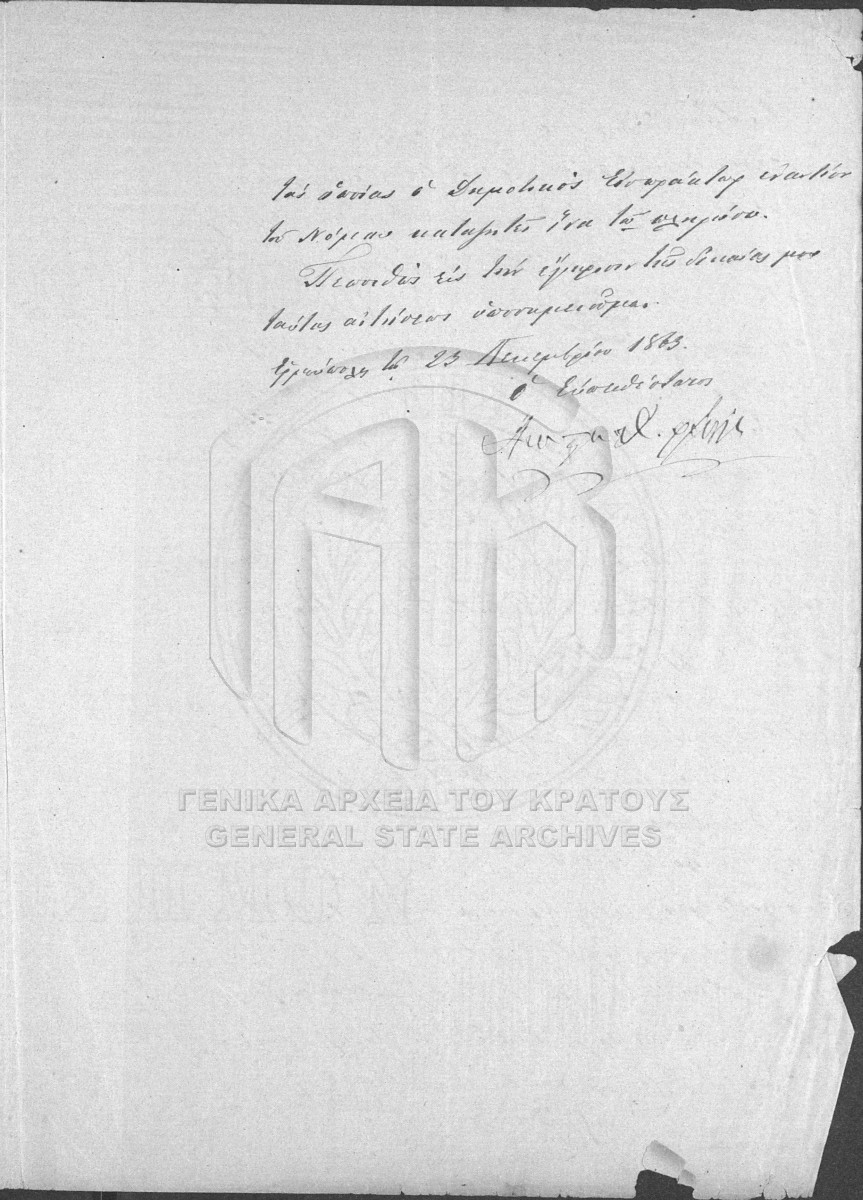 τας οποίας ο Δημοτικός Εισπράκτωρ εναντίον
του Νόμου καταζητεί ίνα τω πληρώσω.
Πεποιθώς εις την έγκρισιν της δικαίας μου
ταύτης αιτήσεως υποσημειούμαι.
Ερμούπολη τη 23 Δεκεμβρίου 1863.
ο Ευπειθέστατος
ΓΕΝΙΚΑ ΑΡΧΕΙΑ ΤΟΥ ΚΡΑΤΟΥΣ
GENERAL STATE ARCHIVES